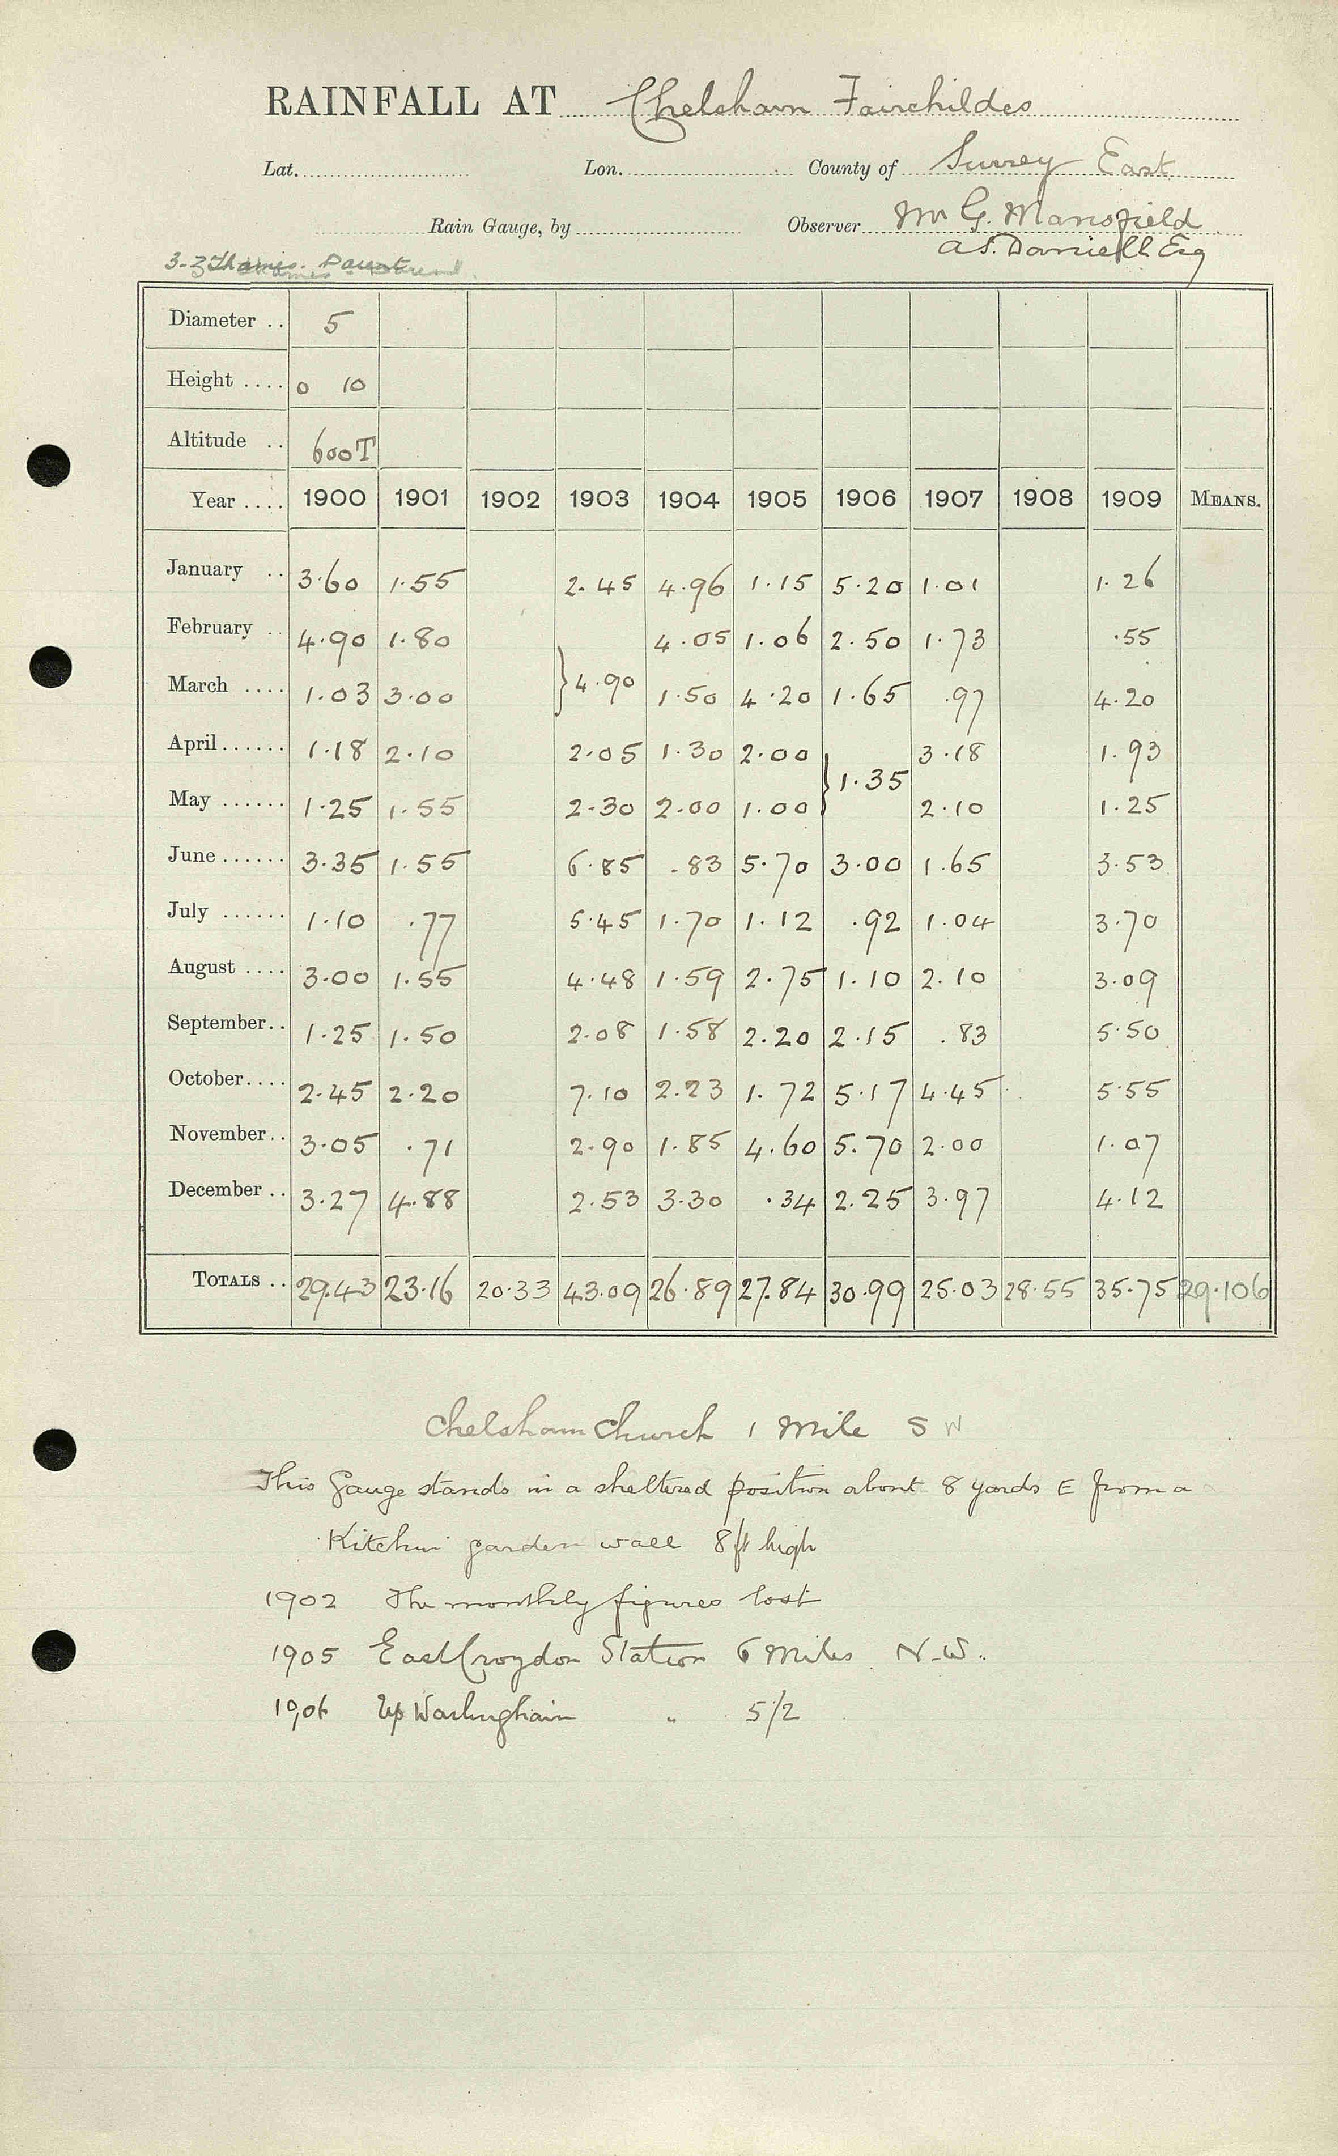 RAINFALL AT Chelsham Fairchildes
Lat. Lon. County of Surrey East
Rain Gauge, by Observer Mr G. Mansfield
A S. Daniell Esq
3-3 Thames
Diameter .. 5
Height .... 0 10
Altitude .. 600T
Year .... 1900 1901 1902 1903 1904 1905 1906 1907 1908 1909 MEANS.
January .. 3.60 1.55 2.45 4.96 1.15 5.20 1.01 1.26
February .. 4.90 1.80 4.05 1.06 2.50 1.73 .55
March .... 1.03 3.00 }4.90 1.50 4.20 1.65 .97 4.20
April...... 1.18 2.10 2.05 1.30 2.00 3.18 1.93
}1.35
May ...... 1.25 1.55 2.30 2.00 1.00 2.10 1.25
June...... 3.35 1.55 6.85 .83 5.70 3.00 1.65 3.53
July ...... 1.10 .77 5.45 1.70 1.12 .92 1.04 3.70
August .... 3.00 1.55 4.48 1.59 2.75 1.10 2.10 3.09
September.. 1.25 1.50 2.08 1.58 2.20 2.15 .83 5.50
October.... 2.45 2.20 7.10 2.23 1.72 5.17 4.45 5.55
November.. 3.05 .71 2.90 1.85 4.60 5.70 2.00 1.07
December .. 3.27 4.88 2.53 3.30 .34 2.25 3.97 4.12
TOTALS .. 29.43 23.16 20.33 43.09 26.89 27.84 30.99 25.03 28.55 35.75 29.106
Chelsham Church 1 Mile S W
This Gauge stands in a sheltered position about 8 yards E from a
Kitchen garden wall 8ft high
1902 The monthly figures lost
1905 East Croydon Station 6 Miles N.W.
1906 Up Warlingham " 5 1/2